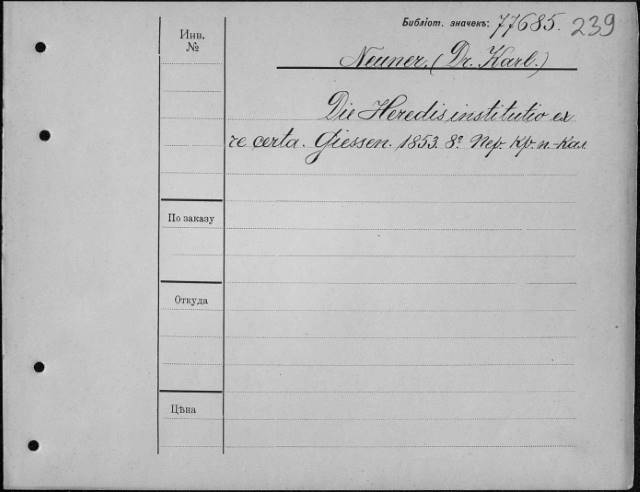 Библіот. значекъ: 77685. 239
Инв.
№
Neuner. (Dr. Karl.)
Die Heredis institutio ex
re certa. Giessen. 1853. 8º. Пер. Кр. п.-Кал
По заказу
Откуда
Цѣна